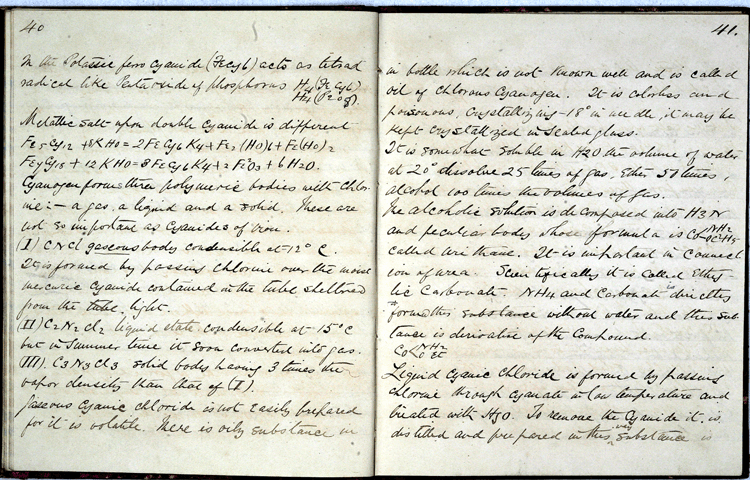 40
In the Potassic ferrocyanide (Fecy6) acts as tetrad
radical like Pentoxide of phosphorus H4 (Fe Cy6)
H4 (P2 O7).
Metallic salt upon double Cyanide is different
Fe5 Cy12 + 8KHO = 2FeCy6K4 + Fe2(HO)6 + Fe(HO)2
Fe7Cy18 + 12KHO = 3FeCy6K4 + 2Fe2O3 + 6H2O.
Cyanogen forms three polymeric bodies with Chlor-
ine :— a gas, a liquid and a solid. These are
not so important as Cyanides of iron.
(I) CNCl gaseous body condensible at -12° C.
It is formed by passing chlorine over the moist
mercuric Cyanide contained in the tube sheltered
from the tube light.
(II) C2N2Cl2 liquid state, condensible at -15° C
but in Summer time it soon converted into gas.
(III). C3N3Cl3 solid bodies having 3 times the
vapor density than that of (I).
Gaseous Cyanic chloride is not easily prepared
for it is volatile. There is oily substance in
41.
in bottle which is not known well and is called
oil of Chlorous Cyanogen. It is colorless and
poisonous, Crystallizing -18° in needle, it may be
kept crystallized in sealed glass.
It is somewhat soluble in H2O the volume of water
at 20° dissolve 25 times of gas, Ether 50 times,
alcohol 100 times the volumes of gas.
The alcoholic solution is decomposed into H3N
and peculiar bodies whose formula is CO NH2 OC2H5
called urethane. It is important in connect
ion of urea. Scientifically it is called Ethy-
lic Carbonate. NH4 and Carbonate directly
form this substance without water and this sub-
stance is derivative of the Compound.
CO NH2 O Et
Liquid Cyanic Chloride is formed by passing
chlorine through cyanate in low temperature and
treated with H2O. To remove the Cyanide it is
distilled and prepared in this very substance is